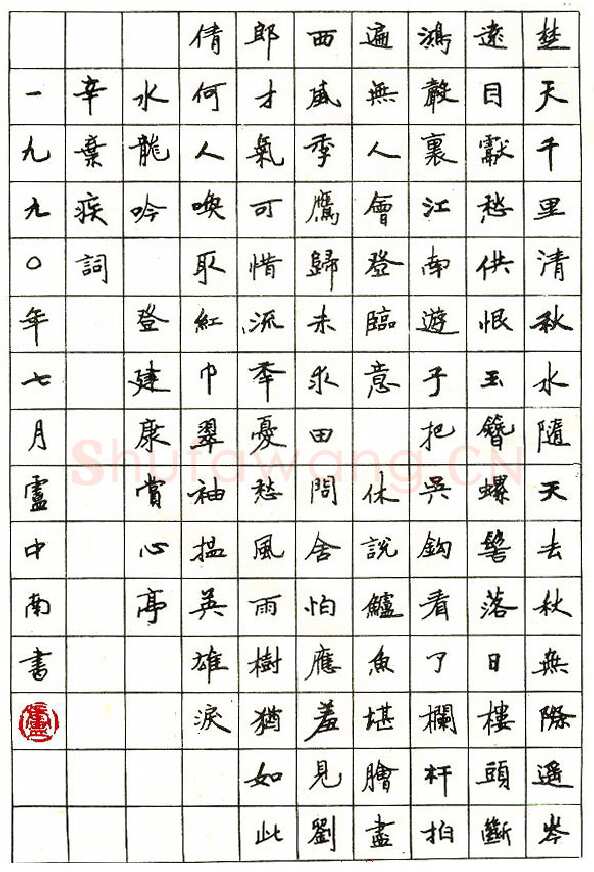 楚天千里清秋水隨天去秋無際遥岑
遠目獻愁供恨玉簪螺髻落日樓頭斷
鴻聲裏江南遊子把吳鈎看了欄杆拍
遍無人會登臨意 休說鱸魚堪膾盡
西風季鷹歸未求田問舍怕應羞見劉
郎才氣可惜流年憂愁風雨樹猶如此
倩何人喚取紅巾翠袖揾英雄淚
水龍吟 登建康賞心亭
辛棄疾詞
一九九〇年七月盧中南書
Shufawang.CN